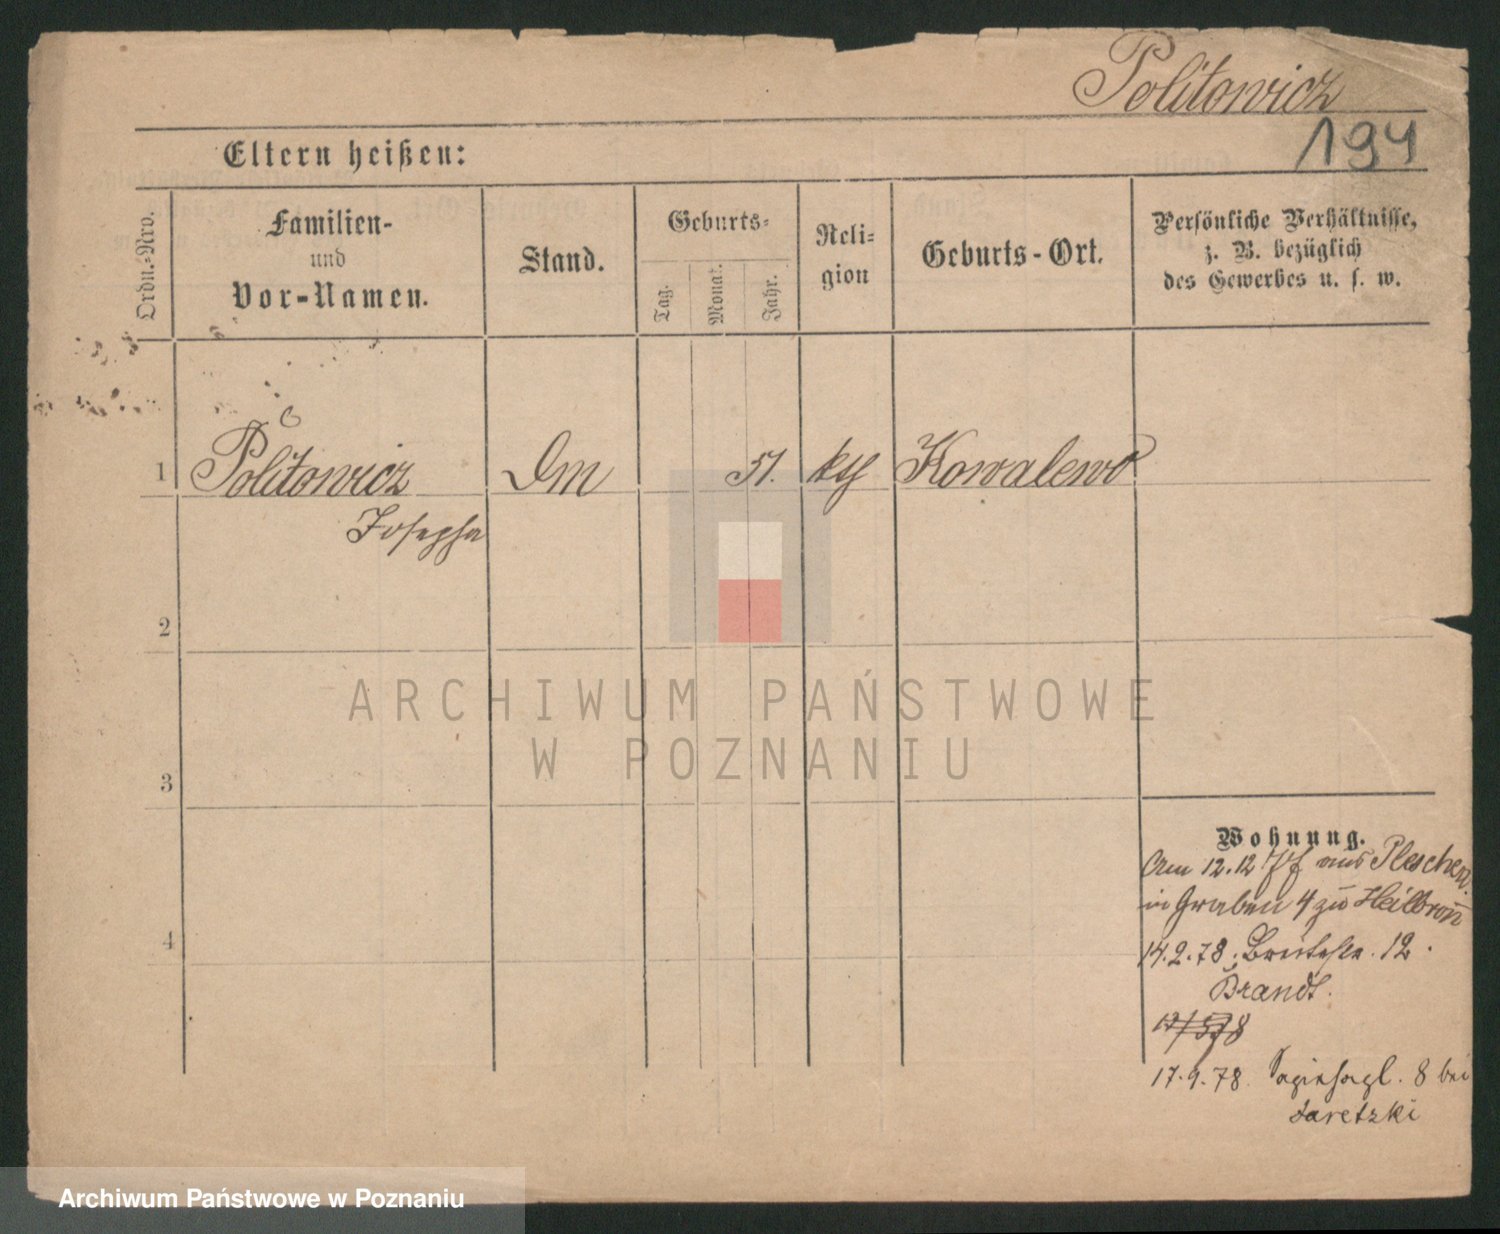 Politowicz
194
Eltern heißen:
Ordn.-Nro.
Familien-
und
Vor-Namen.
Stand.
Geburts-
Tag.
Monat.
Jahr.
Reli-
gion
Geburts-Ort.
Persönliche Verhältnisse,
z. B. bezüglich
des Gewerbes u. s. w.
1
Politowicz
Josepha
Dm
51.
kth
Kowalewo
2
3
4
Wohnung.
Am 12.12 77 aus Pleschen
in Graben 4 zu Heilbronn
14.2.78. Breitestr. 12.
Brandt.
17.9.78. 8 bei
Jaretzki
ARCHIWUM PAŃSTWOWE
W POZNANIU
Archiwum Państwowe w Poznaniu